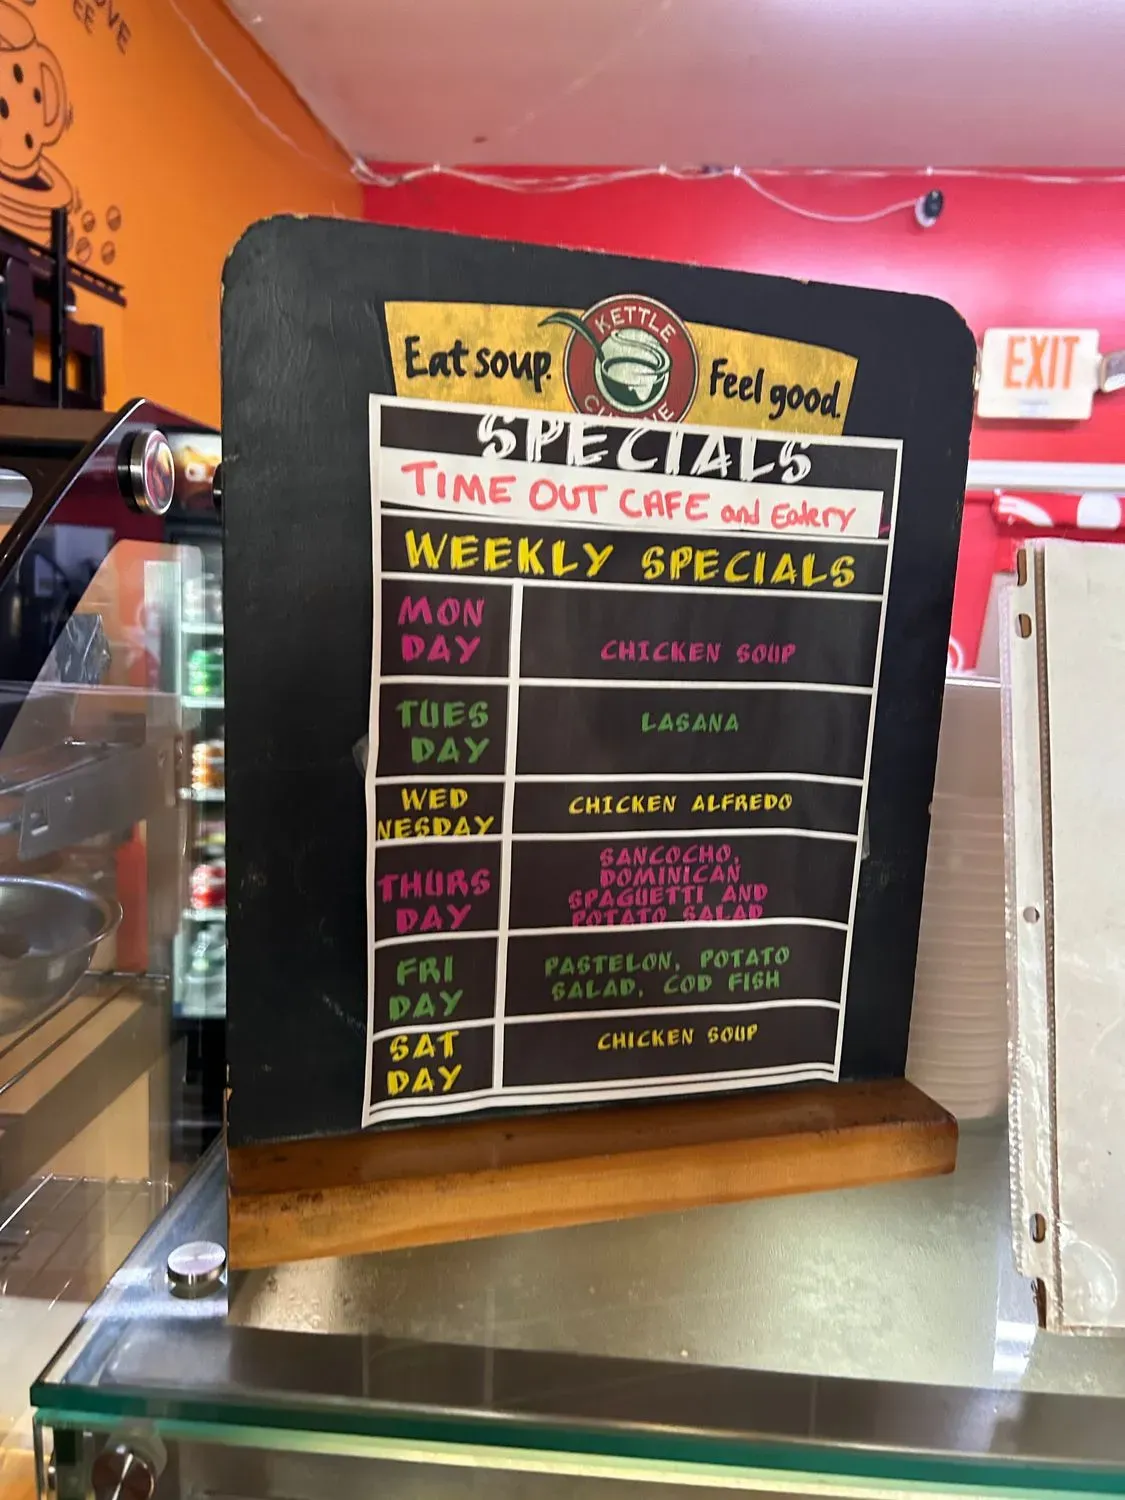 OVE
EE
Eat soup.
KETTLE
CUISINE
Feel good.
EXIT
SPECIALS
TIME OUT CAFE and Eatery
WEEKLY SPECIALS
MON
DAY
CHICKEN SOUP
TUES
DAY
LASANA
WED
NESDAY
CHICKEN ALFREDO
THURS
DAY
SANCOCHO,
DOMINICAN
SPAGUETTI AND
POTATO SALAD
FRI
DAY
PASTELON, POTATO
SALAD, COD FISH
SAT
DAY
CHICKEN SOUP